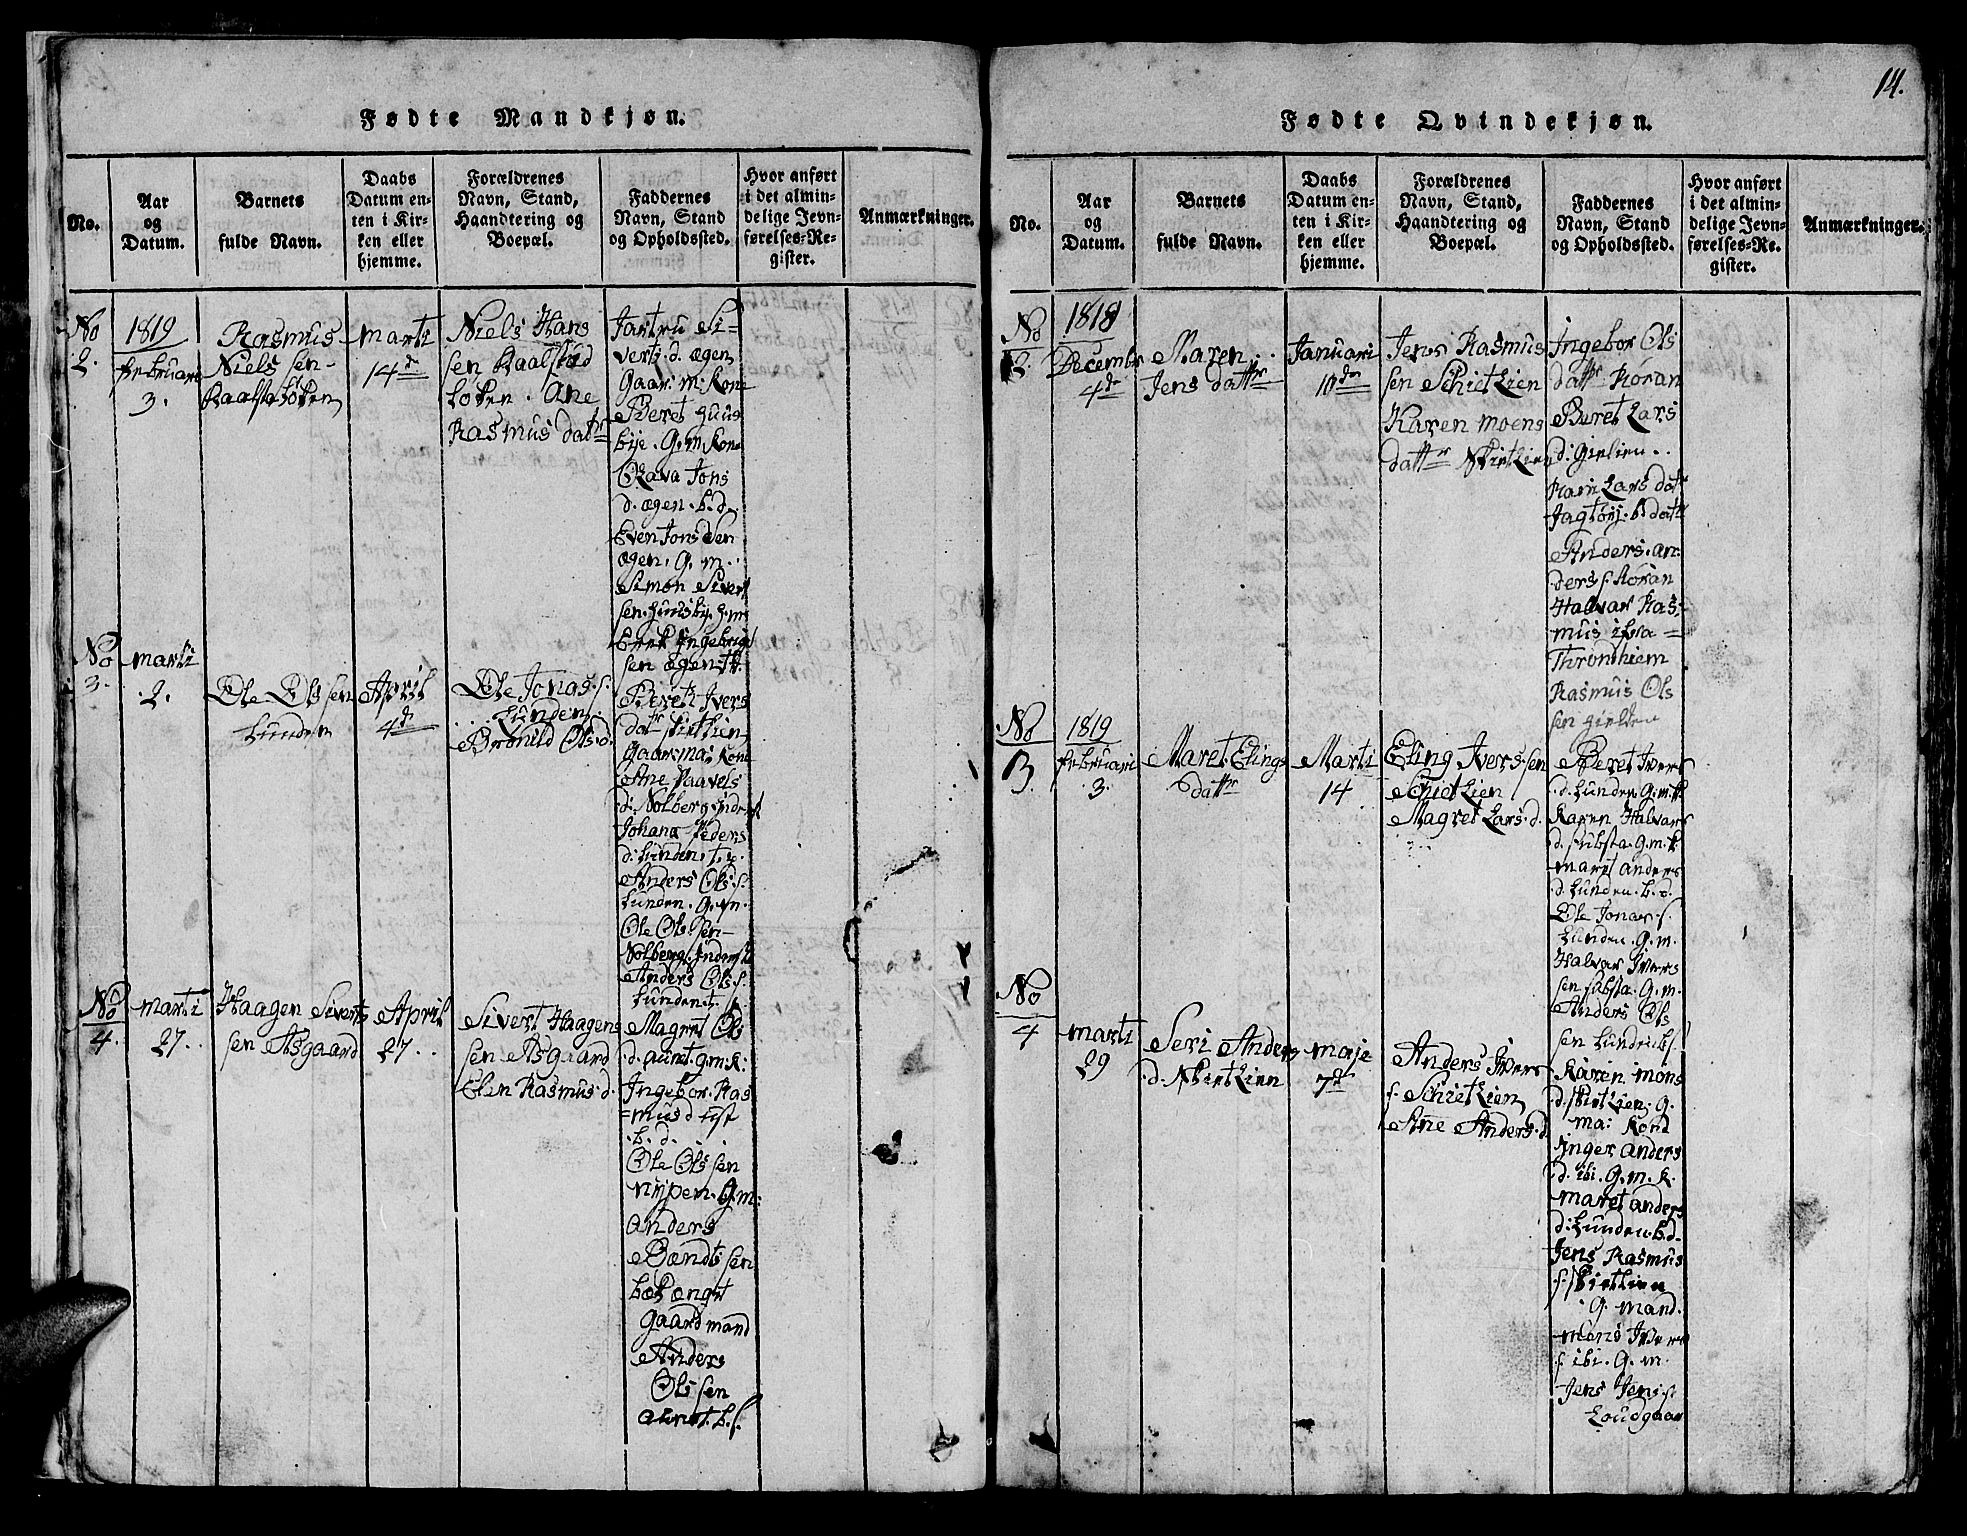 14.
Fødte Mandkjøn.
No.
Aar
og
Datum.
Barnets
fulde Navn.
Daabs
Datum en-
ten i Kir-
ken eller
hjemme.
Forældrenes
Navn, Stand,
Haandtering og
Boepæl.
Faddernes
Navn, Stand
og Opholdssted.
Hvor anført
i det almin-
delige Jevn-
førelses-Re-
gister.
Anmærkninger.
No
2.
1819
Februari
3.
Rasmus
Niels sen
Marti
14de
Niels Hans
sen
Ane
Rasmus datr
Si-
verts. d. ægen
Gaar. m. Kone
Beret Huus
bye. G. m. Kone
Olava Jons
d. ægen. b. d.
Even Jons Sen
ægen. G. m.
Simon Sivert
sen. Huusbye. G. m.
Erik Ingebrigt
sen ægen
No
3.
Marti
2.
Ole Ols sen
Lunden
April
4de
Ole Jonas. s.
Lunden
Ols. d.
Beret Ivers
datr
Gaar. ma. Kone
Ane Paavels
d. Solberg
Johana Peders
d. Lunden.
Anders Ols. s.
Lunden. G. m.
Ole Ols. sen
Solberg.
Anders Ols. s.
Lunden.
No
4.
Marti
27.
Haagen Siverts
sen Asgaard
April
27.
Sivert Haagens
sen Asgaard
Elen Rasmus. d.
Magret Ols
d. auret. G. m. K:
Ingebor. Ras
mus d
b. d.
Ole Ols sen
nypen. G. m:
Anders
Bændt sen
Gaard mand
Anders
Ols sen
auret. b. s.
Fødte Qvindekjøn.
No.
Aar
og
Datum.
Barnets
fulde Navn.
Daabs
Datum en-
ten i Kir-
ken eller
hjemme.
Forældrenes
Navn, Stand,
Haandtering og
Boepæl.
Faddernes
Navn, Stand
og Opholdssted.
Hvor anført
i det almin-
delige Jevn-
førelses-Re-
gister.
Anmærkninger.
No
2.
1818
Decembr
4de
Maren
Jens dattr
Januari
10de
Jens Rasmus
sen Schietlien
Karen Moens
dattr Skietlien
Ingebor Ols
dattr
Beret Lars
d.
Kari Lars datr
b. datr
Anders. An
ders s.
Halvar Ras-
mus
Thronhiem
Rasmus Ols
sen
No
3.
1819
Februari
3.
Maret. Elings
dattr
Marti
14
Eling Ivers. sen
Schietlien
Magret Lars. d.
Beret Ivers
d. Lunden. G. m. K
Karen Halvars
d. G. m. K
Maret Anders
d. Lunden. b. d.
Ole Jonas. s.
Lunden. G. m.
Halvar Ivers
sen G. m.
Anders Ols
sen Lunden b. s.
No
4
Marti
29
Seri Anders
d. Skietlien
Maje
7de
Anders Ivers
s. Schietlien
Ane Anders. d.
Karen Mons
d. Skietlien. G.
ma: Kond
Inger Anders
d. ibi. G. m. K.
Maret Anders
d. Lunden. b. d.
Jens Rasmus
s. Skietlien
G. mand.
Mons Ivers
s. ibi. G. m.
Jens Jens. s.